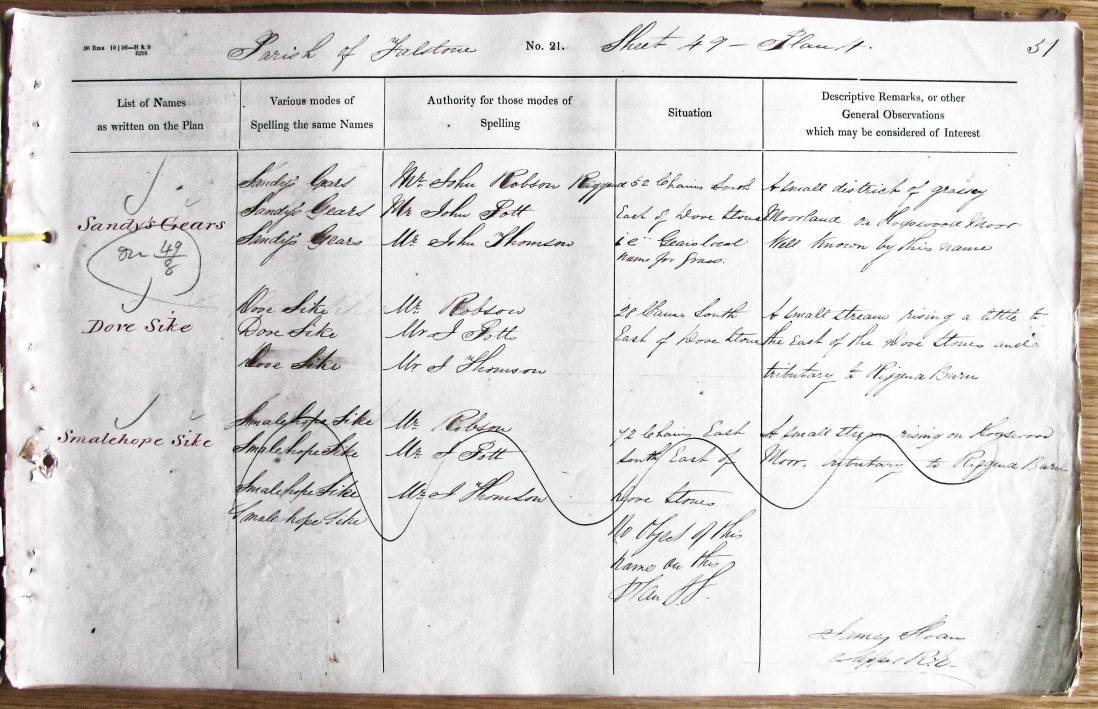 30 Rms 10|56—H & S
6295
Parish of Falstone No. 21. Sheet 49 - Plan 4. 51
List of Names
as written on the Plan
Various modes of
Spelling the same Names
Authority for those modes of
Spelling
Situation
Descriptive Remarks, or other
General Observations
which may be considered of Interest
Sandy's Gears
on 49/8
Sandy's Gears
Sandy's Gears
Sandy's Gears
Mr John Robson Riggend
Mr John Pott
Mr John Thomson
52 Chains South
East of Dove Stones
i e " Gears local
name for grass.
A small district of grassy
Moorland on Hogswood Moor
Well Known by this name
Dove Sike
Dove Sike
Dove Sike
Dove Sike
Mr Robson
Mr J Potts
Mr J Thomson
28 Chains South
East of Dove Stones
A small stream rising a little to
the East of the Dove Stones and
tributary to Riggend Burn
Smalehope Sike
Smalehope Sike
Smalehope Sike
Smalehope Sike
Smalehope Sike
Mr Robson
Mr J Pott
Mr J Thomson
72 Chains East
South East of
Dove Stones
No Object of this
name on this
Plan J.S.
A small stream rising on Hogswood
Moor, tributary to Riggend Burn
James Sloan
Sapper R.E.